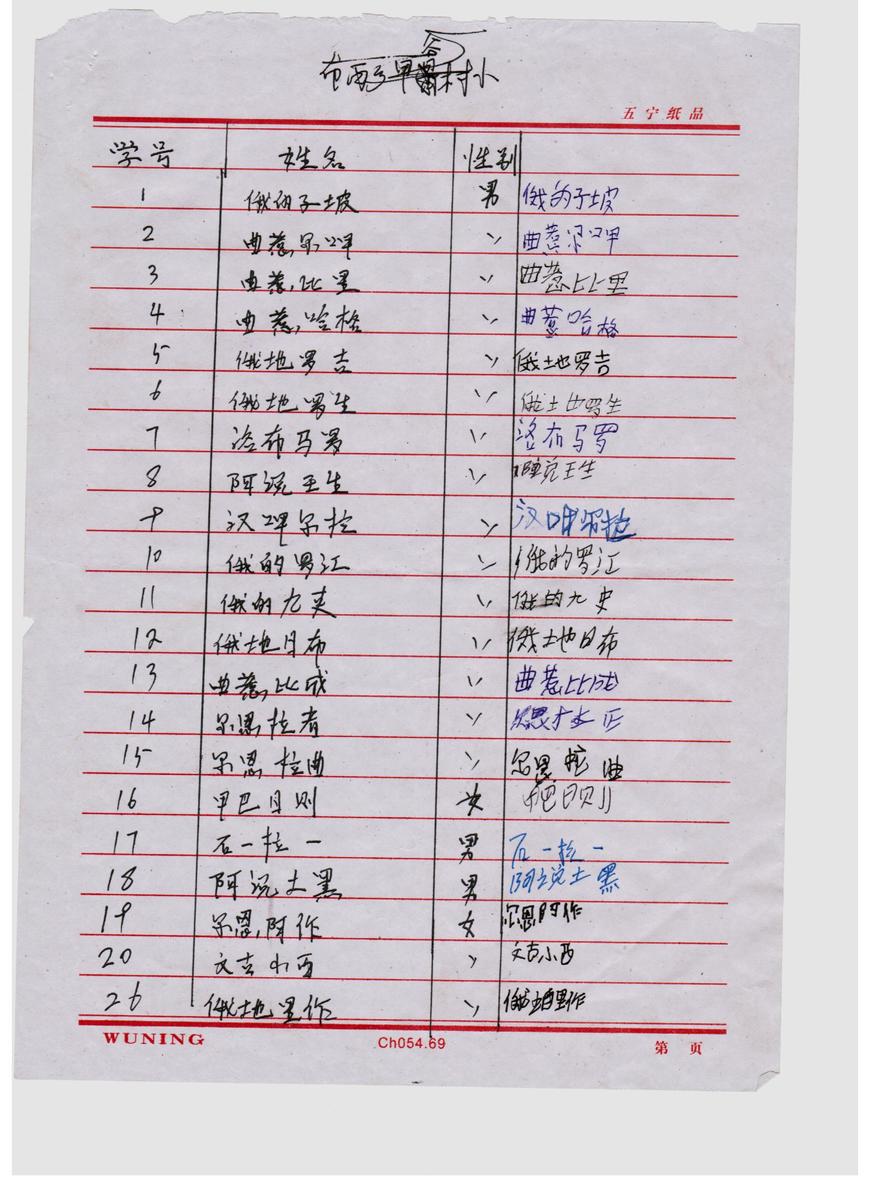 村小
五宁纸品
学号 姓名 性别
1 俄的子坡 男 俄的子坡
2 曲惹尔呷 〃 曲惹尔呷
3 曲惹比里 〃 曲惹比里
4 曲惹哈格 〃 曲惹哈格
5 俄地罗吉 〃 俄地罗吉
6 俄地罗生 〃 俄地罗生
7 洛布马罗 〃 洛布马罗
8 阿说王生 〃 阿说王生
9 汉呷尔拉 〃 汉呷尔拉
10 俄的罗江 〃 俄的罗江
11 俄的九史 〃 俄的九史
12 俄地日布 〃 俄地日布
13 曲惹比成 〃 曲惹比成
14 尔恩拉者 〃
15 尔恩拉曲 〃 尔恩拉曲
16 甲巴日则 女
17 石一拉一 男 石一拉一
18 阿说土黑 男 阿说土黑
19 尔恩阿作 女 尔恩阿作
20 文古小西 〃 文古小西
26 俄地里作 〃 俄地里作
WUNING Ch054.69 第 页